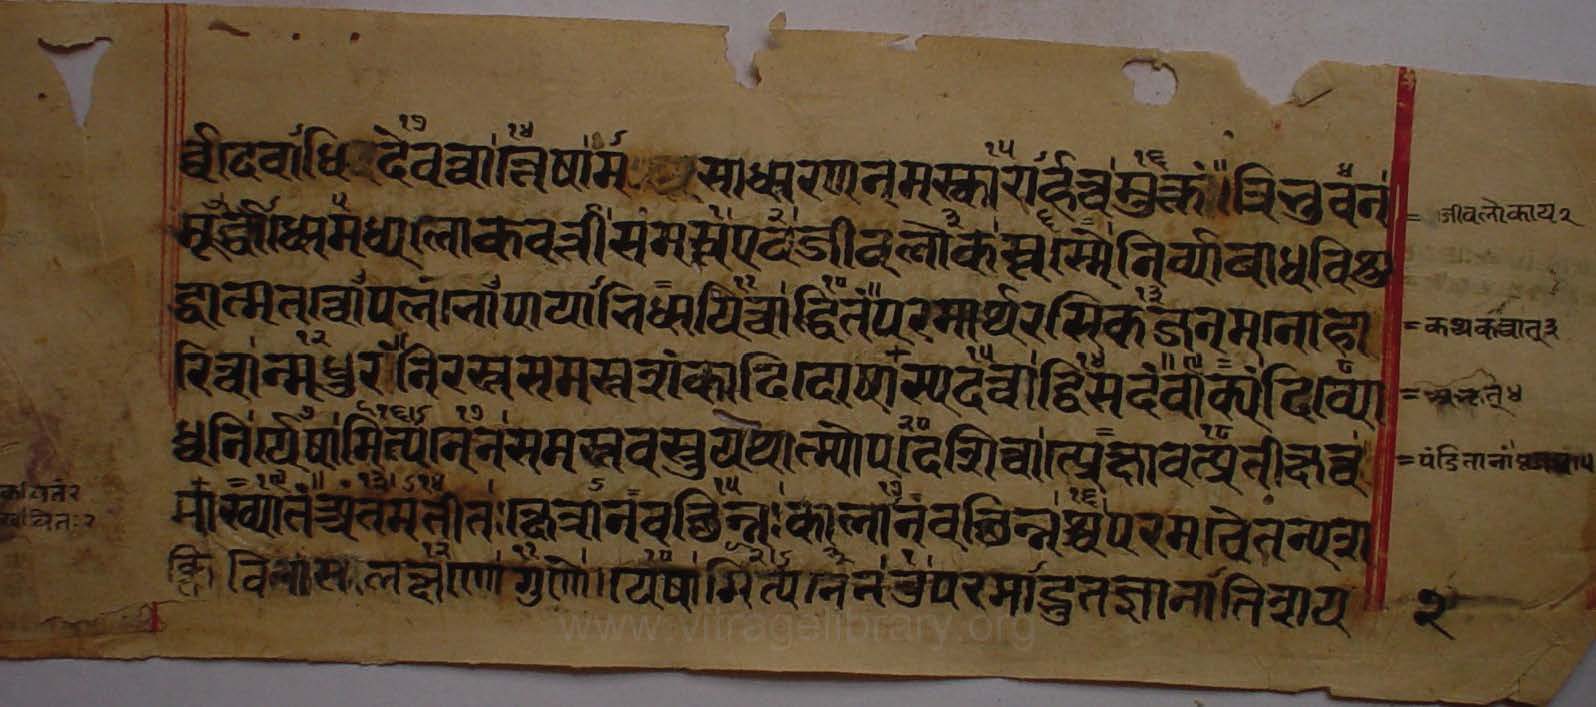 र्व्वदेवाधि देवत्वात्तेषामे साधारणनमस्कारार्हत्वमुक्तं॥त्रिभुवनं
मूर्द्ध्वाधोमध्यलोकवर्त्ती समस्त एव जीवलोकस्तस्मै निर्व्याबाधविशु
द्धात्मतत्त्वोपलंभोपायाभिधायित्वाद्धितं परमार्थरसिकजनमनोहा
रित्वान्मधुरं निरस्तसमस्तशंकादिदोषास्पदत्वाद्विसदं वाक्यं दिव्यो
ध्वनिर्येषामित्यनेन समस्तवस्तुयथात्म्योपदेशित्वात्प्रेक्षावत्प्रतीक्ष्यत्व
माख्यातं अंतमतीतः क्षेत्रानवछिन्नः कालानवछिन्नश्च परमचैतन्यश
क्ति विलास लक्षणो गुणो येषामित्यनेन तु परमाद्भुतज्ञानातिशय २
= जीवलोकाय २
= कथकत्वात् ३
= पंडितानां
www.vitragelibrary.org